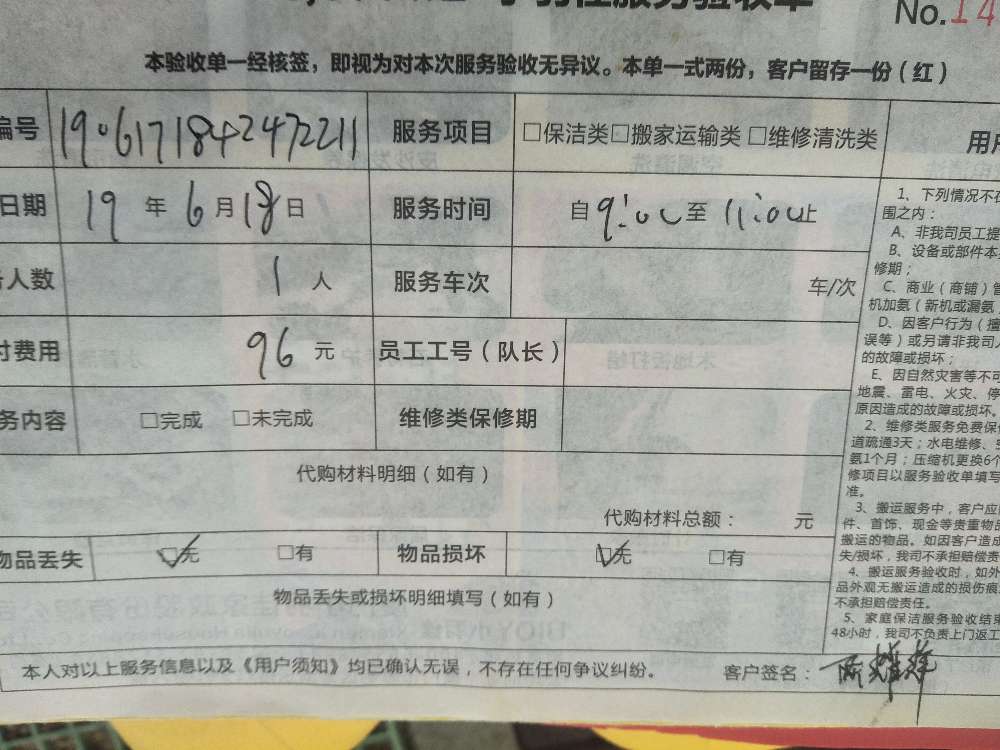 服务验收单 No.14
本验收单一经核签，即视为对本次服务验收无异议。本单一式两份，客户留存一份（红）
编号 1906171842472211 服务项目 □保洁类□搬家运输类 □维修清洗类
日期 19 年 6 月 18 日 服务时间 自 9:00 至 11:00 止
人数 1 人 服务车次 车/次
费用 96 元 员工工号（队长）
务内容 □完成 □未完成 维修类保修期
代购材料明细（如有）
代购材料总额： 元
物品丢失 ☑无 □有 物品损坏 ☑无 □有
物品丢失或损坏明细填写（如有）
本人对以上服务信息以及《用户须知》均已确认无误，不存在任何争议纠纷。 客户签名：
用
1、下列情况不在
围之内：
A、非我司员工提
B、设备或部件本
修期；
C、商业（商铺）管
机加氨（新机或漏氨
D、因客户行为（擅
误等）或另请非我司人
的故障或损坏；
E、因自然灾害等不可
地震、雷电、火灾、停
原因造成的故障或损坏。
2、维修类服务免费保修
道疏通3天；水电维修、空
氨1个月；压缩机更换6个
修项目以服务验收单填写
准。
3、搬运服务中，客户应
件、首饰、现金等贵重物品
搬运的物品。如因客户造成
失/损坏，我司不承担赔偿责
4、搬运服务验收时，如外
品外观无搬运造成的损伤痕
不承担赔偿责任。
5、家庭保洁服务验收结束
48小时，我司不负责上门返工